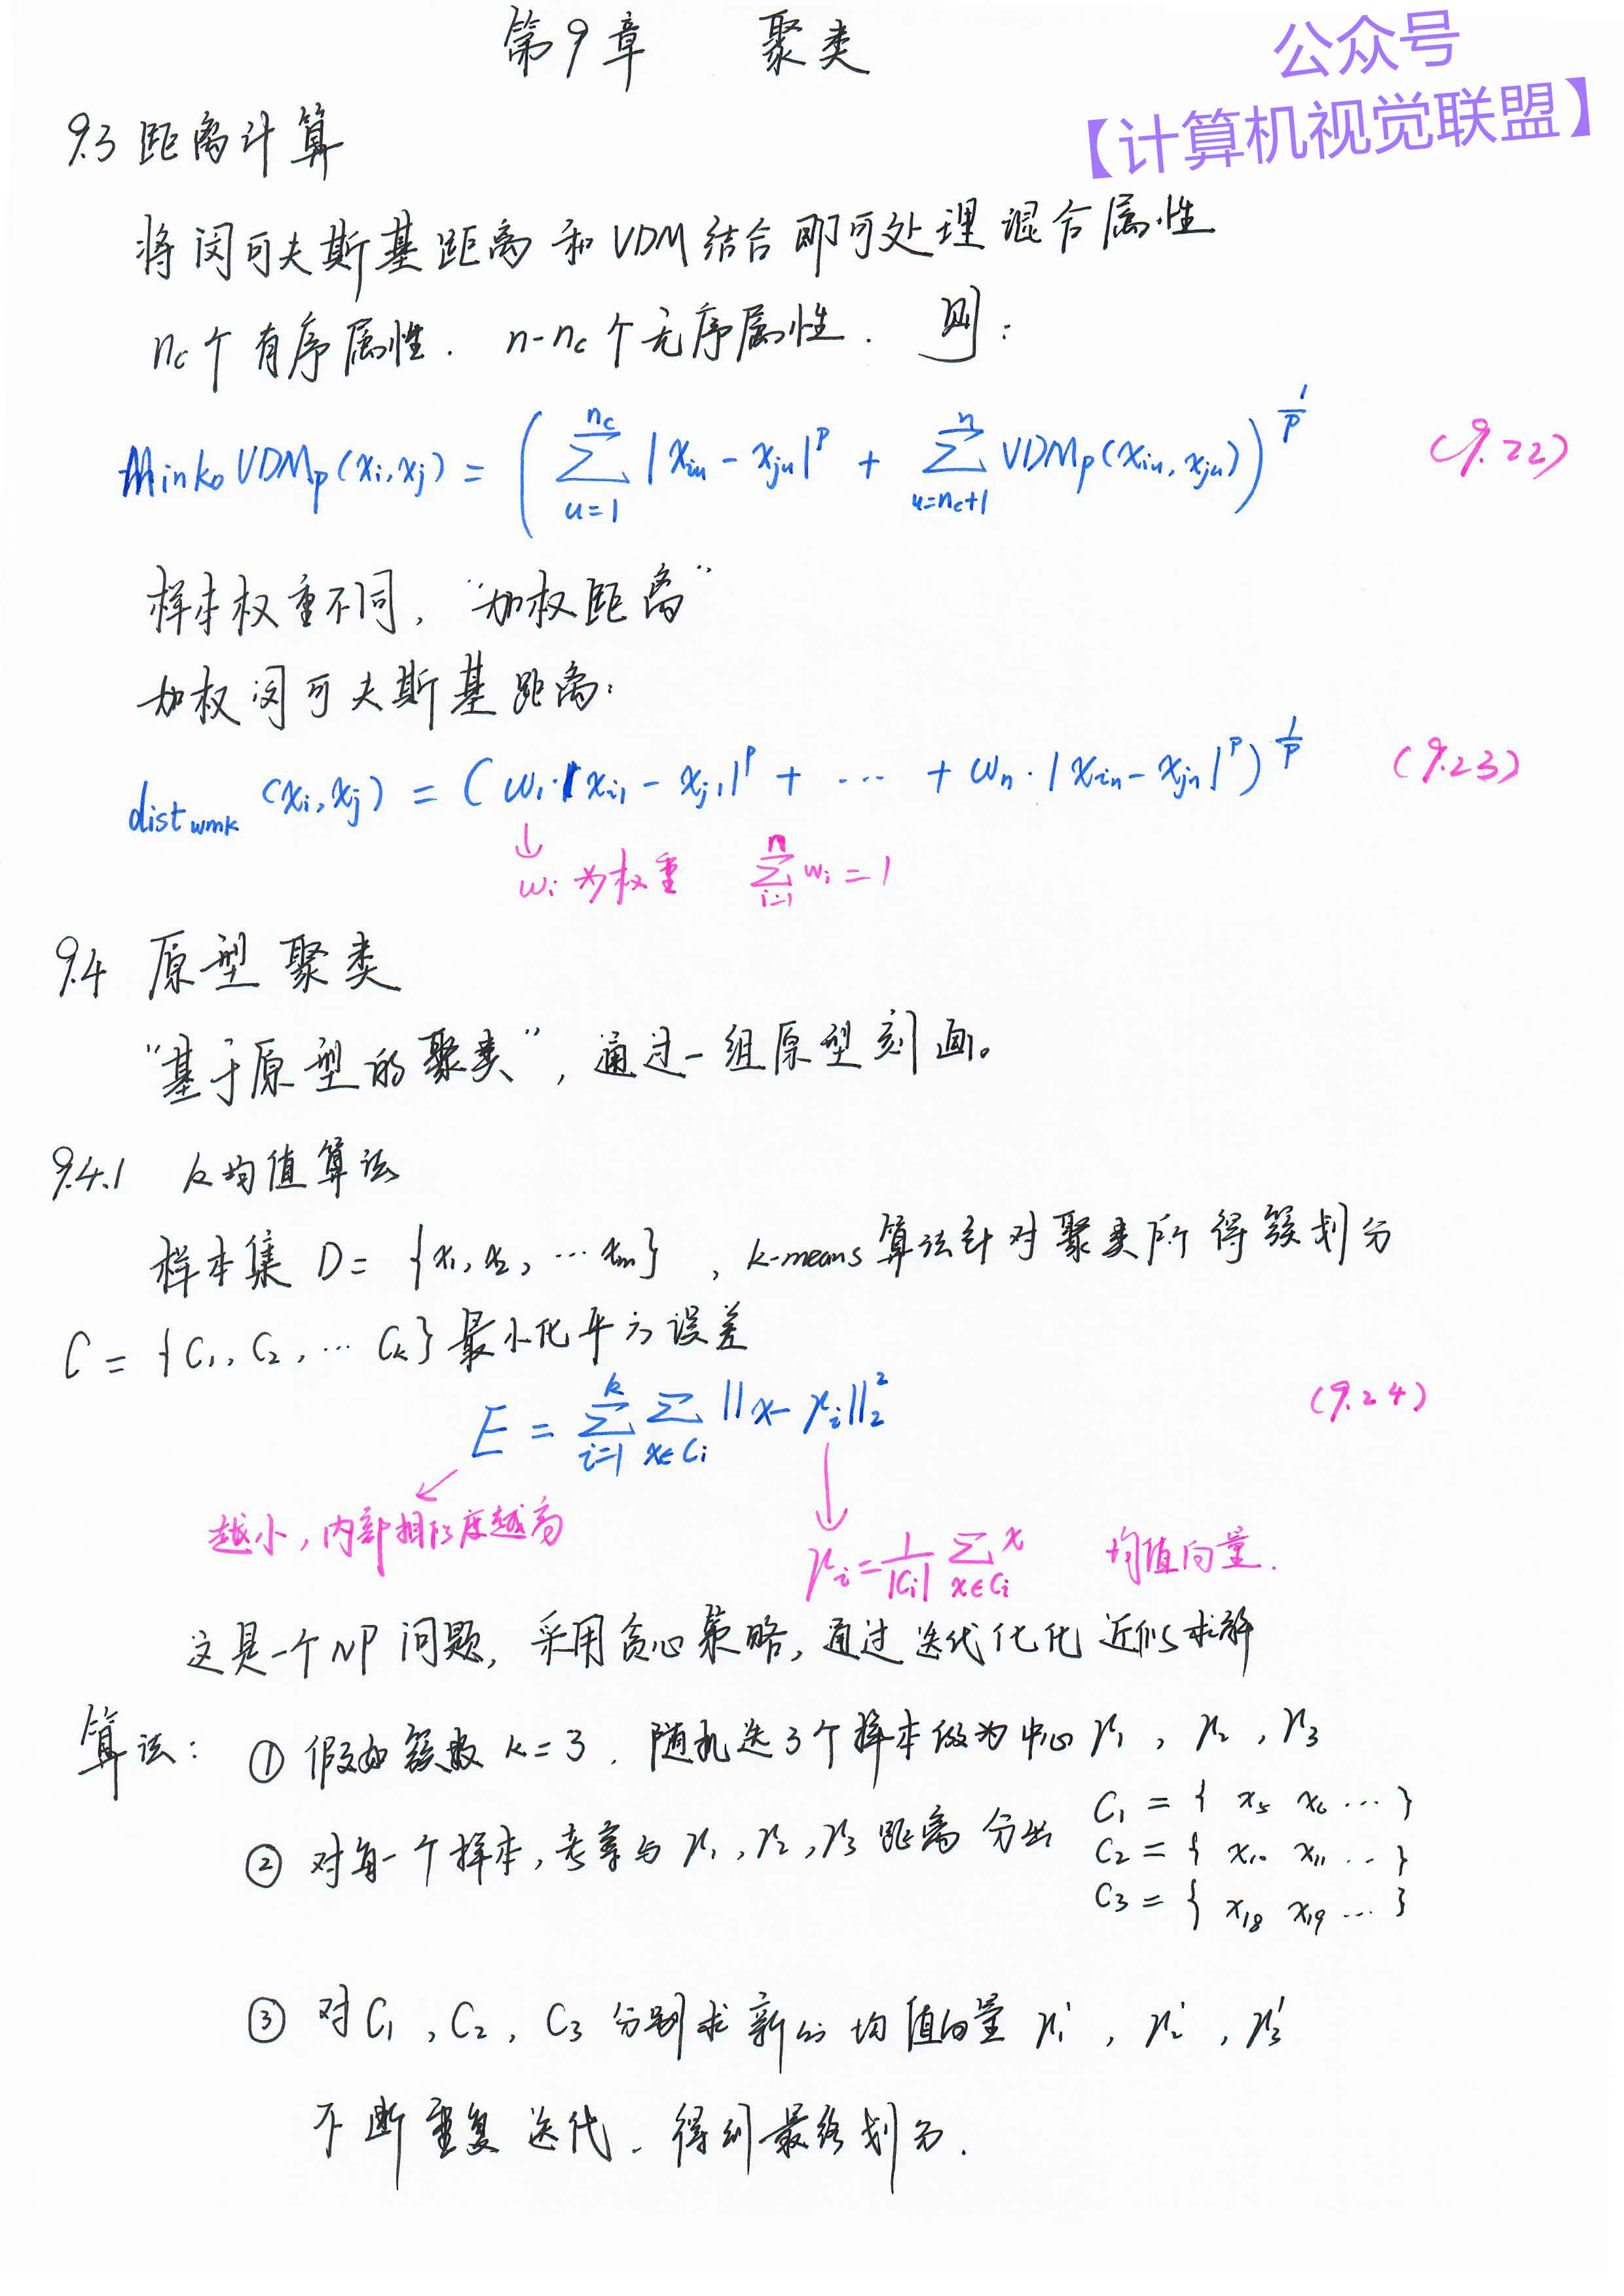 第9章 聚类
公众号
【计算机视觉联盟】
9.3 距离计算
将闵可夫斯基距离和VDM结合即可处理混合属性
n_c个有序属性. n-n_c个无序属性. 则:
MinkoVDM_p(x_i,x_j) = ( ∑_{u=1}^{n_c} |x_{iu} - x_{ju}|^p + ∑_{u=n_c+1}^{n} VDM_p(x_{iu}, x_{ju}) )^{1/p} (9.22)
样本权重不同, “加权距离”
加权闵可夫斯基距离:
dist_{wmk}(x_i,x_j) = (w_1·|x_{i1} - x_{j1}|^p + ··· + w_n·|x_{in} - x_{jn}|^p)^{1/p} (9.23)
↓
w_i 为权重 ∑_{i=1}^{n} w_i = 1
9.4 原型聚类
“基于原型的聚类”, 通过一组原型刻画。
9.4.1 k均值算法
样本集 D = {x_1, x_2, ··· x_m}, k-means算法针对聚类所得簇划分
C = {C_1, C_2, ··· C_k} 最小化平方误差
E = ∑_{i=1}^{k} ∑_{x∈C_i} ||x - μ_i||_2^2 (9.24)
越小, 内部相似度越高
μ_i = 1/|C_i| ∑_{x∈C_i} x 均值向量.
这是一个NP问题, 采用贪心策略, 通过迭代优化近似求解
算法: ① 假如簇数 k=3. 随机选3个样本做为中心 μ_1, μ_2, μ_3
② 对每一个样本, 考察与 μ_1, μ_2, μ_3 距离 分出
C_1 = { x_5 x_6 ··· }
C_2 = { x_10 x_11 ··· }
C_3 = { x_18 x_19 ··· }
③ 对 C_1, C_2, C_3 分别求新的均值向量 μ_1', μ_2', μ_3'
不断重复迭代. 得到最终划分.